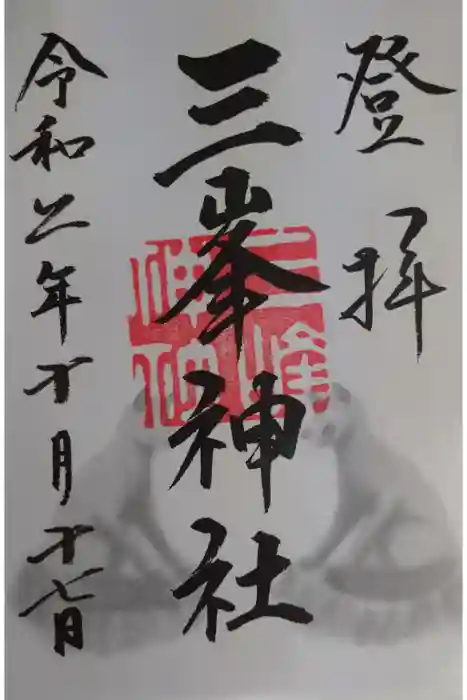 登拝
三峯神社
三峰神社
令和二年十月十七日